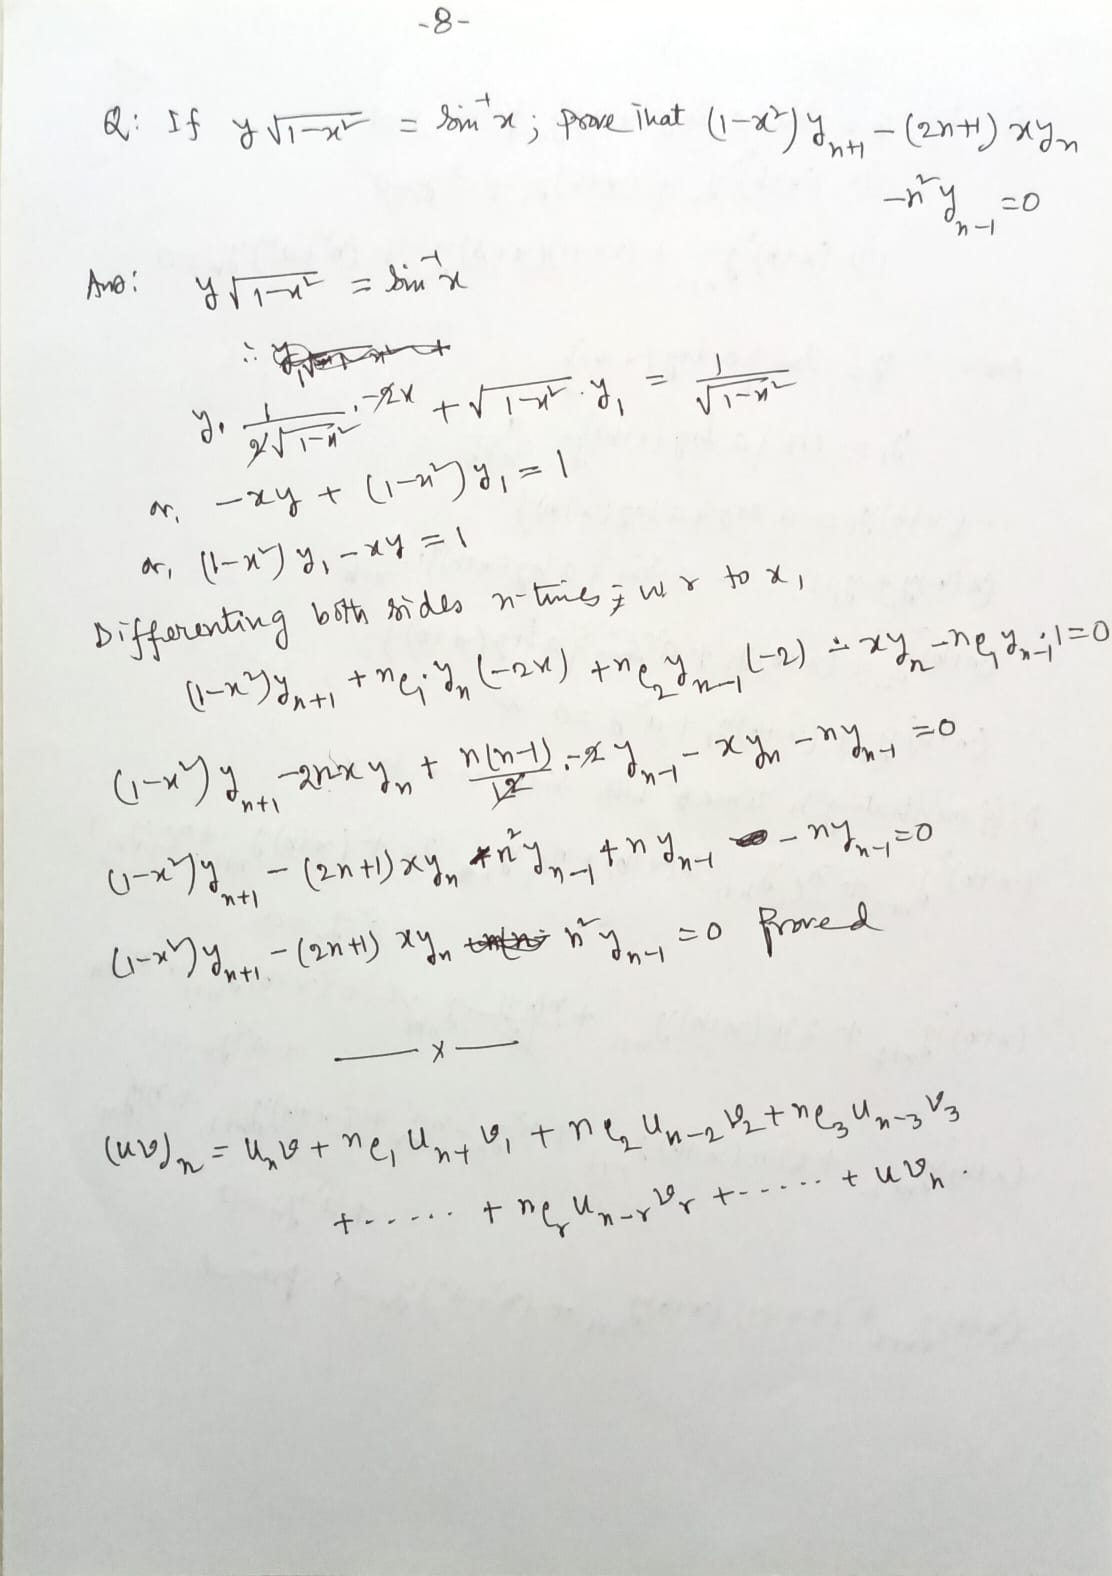 -8-
Q: If y √1-x² = sin⁻¹x ; prove that (1-x²) yₙ₊₁ - (2n+1) xyₙ
-n² yₙ₋₁ = 0
Ans: y √1-x² = sin⁻¹x
∴
y. 1/2√1-x² . -2x + √1-x² . y₁ = 1/√1-x²
or, -xy + (1-x²) y₁ = 1
or, (1-x²) y₁ - xy = 1
Differenting both sides n-times ; w r to x,
(1-x²) yₙ₊₁ + nc₁ . yₙ (-2x) + nc₂ yₙ₋₁ (-2) - xyₙ - nc₁ yₙ₋₁ . 1 = 0
(1-x²) yₙ₊₁ - 2nx yₙ + n(n-1)/⌊2 . -2 yₙ₋₁ - xyₙ - nyₙ₋₁ = 0
(1-x²) yₙ₊₁ - (2n+1) xyₙ - n² yₙ₋₁ + n yₙ₋₁ - nyₙ₋₁ = 0
(1-x²) yₙ₊₁ - (2n+1) xyₙ n² yₙ₋₁ = 0 Proved
—— x ——
(uv)ₙ = uₙv + nc₁ uₙ₋₁ v₁ + nc₂ uₙ₋₂ v₂ + nc₃ uₙ₋₃ v₃
+ ...... + ncᵣ uₙ₋ᵣ vᵣ + ...... + u vₙ .